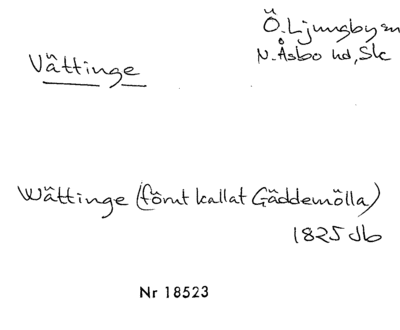 Ö. Ljungby sn
Vättinge
N. Åsbo hd, Skå
Wättinge (förut kallat Gäddemölla)
1825 Jb
Nr 18523